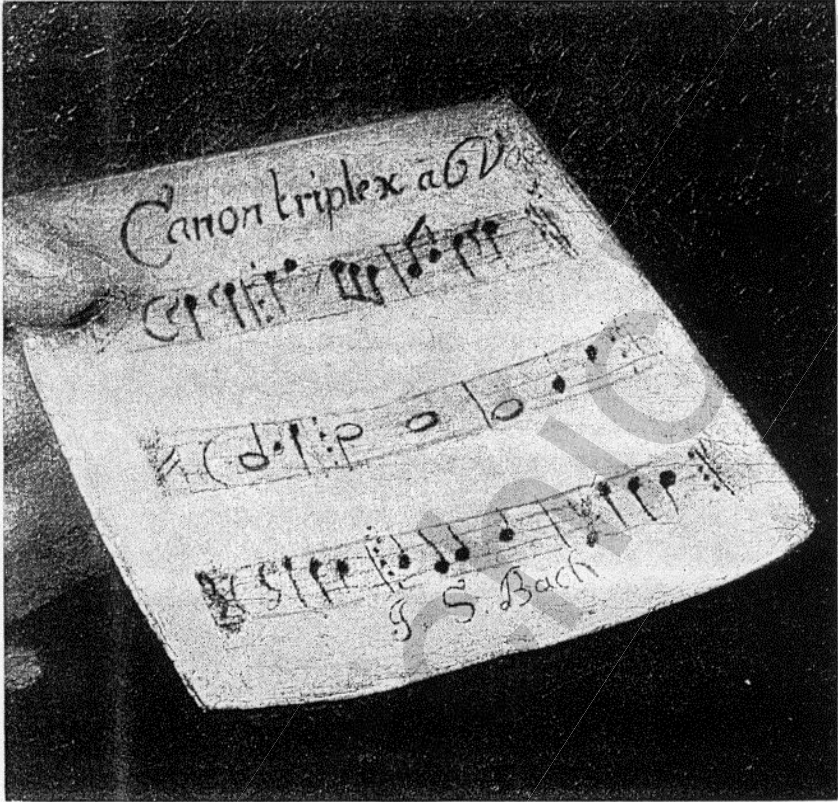 Canon triplex à 6 Voc
J. S. Bach